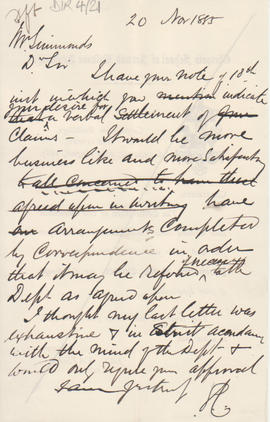 dft DIR 4/21
20 Nov 1885
Mr Simmonds
Dr Sir
I have your note of 18th
inst in which you mention indicate
your desire for
that a verbal Settlement of your
Claims – It would be more
business like and more Satisfactory
to all concerned to have them
agreed upon in writing have
an arrangements Completed
by Correspondence in order
that it may be referred to the
Dept as agreed upon
I thought my last letter was
exhaustive & in strict accordance
with the mind of the Dept &
would only require your approval
I am